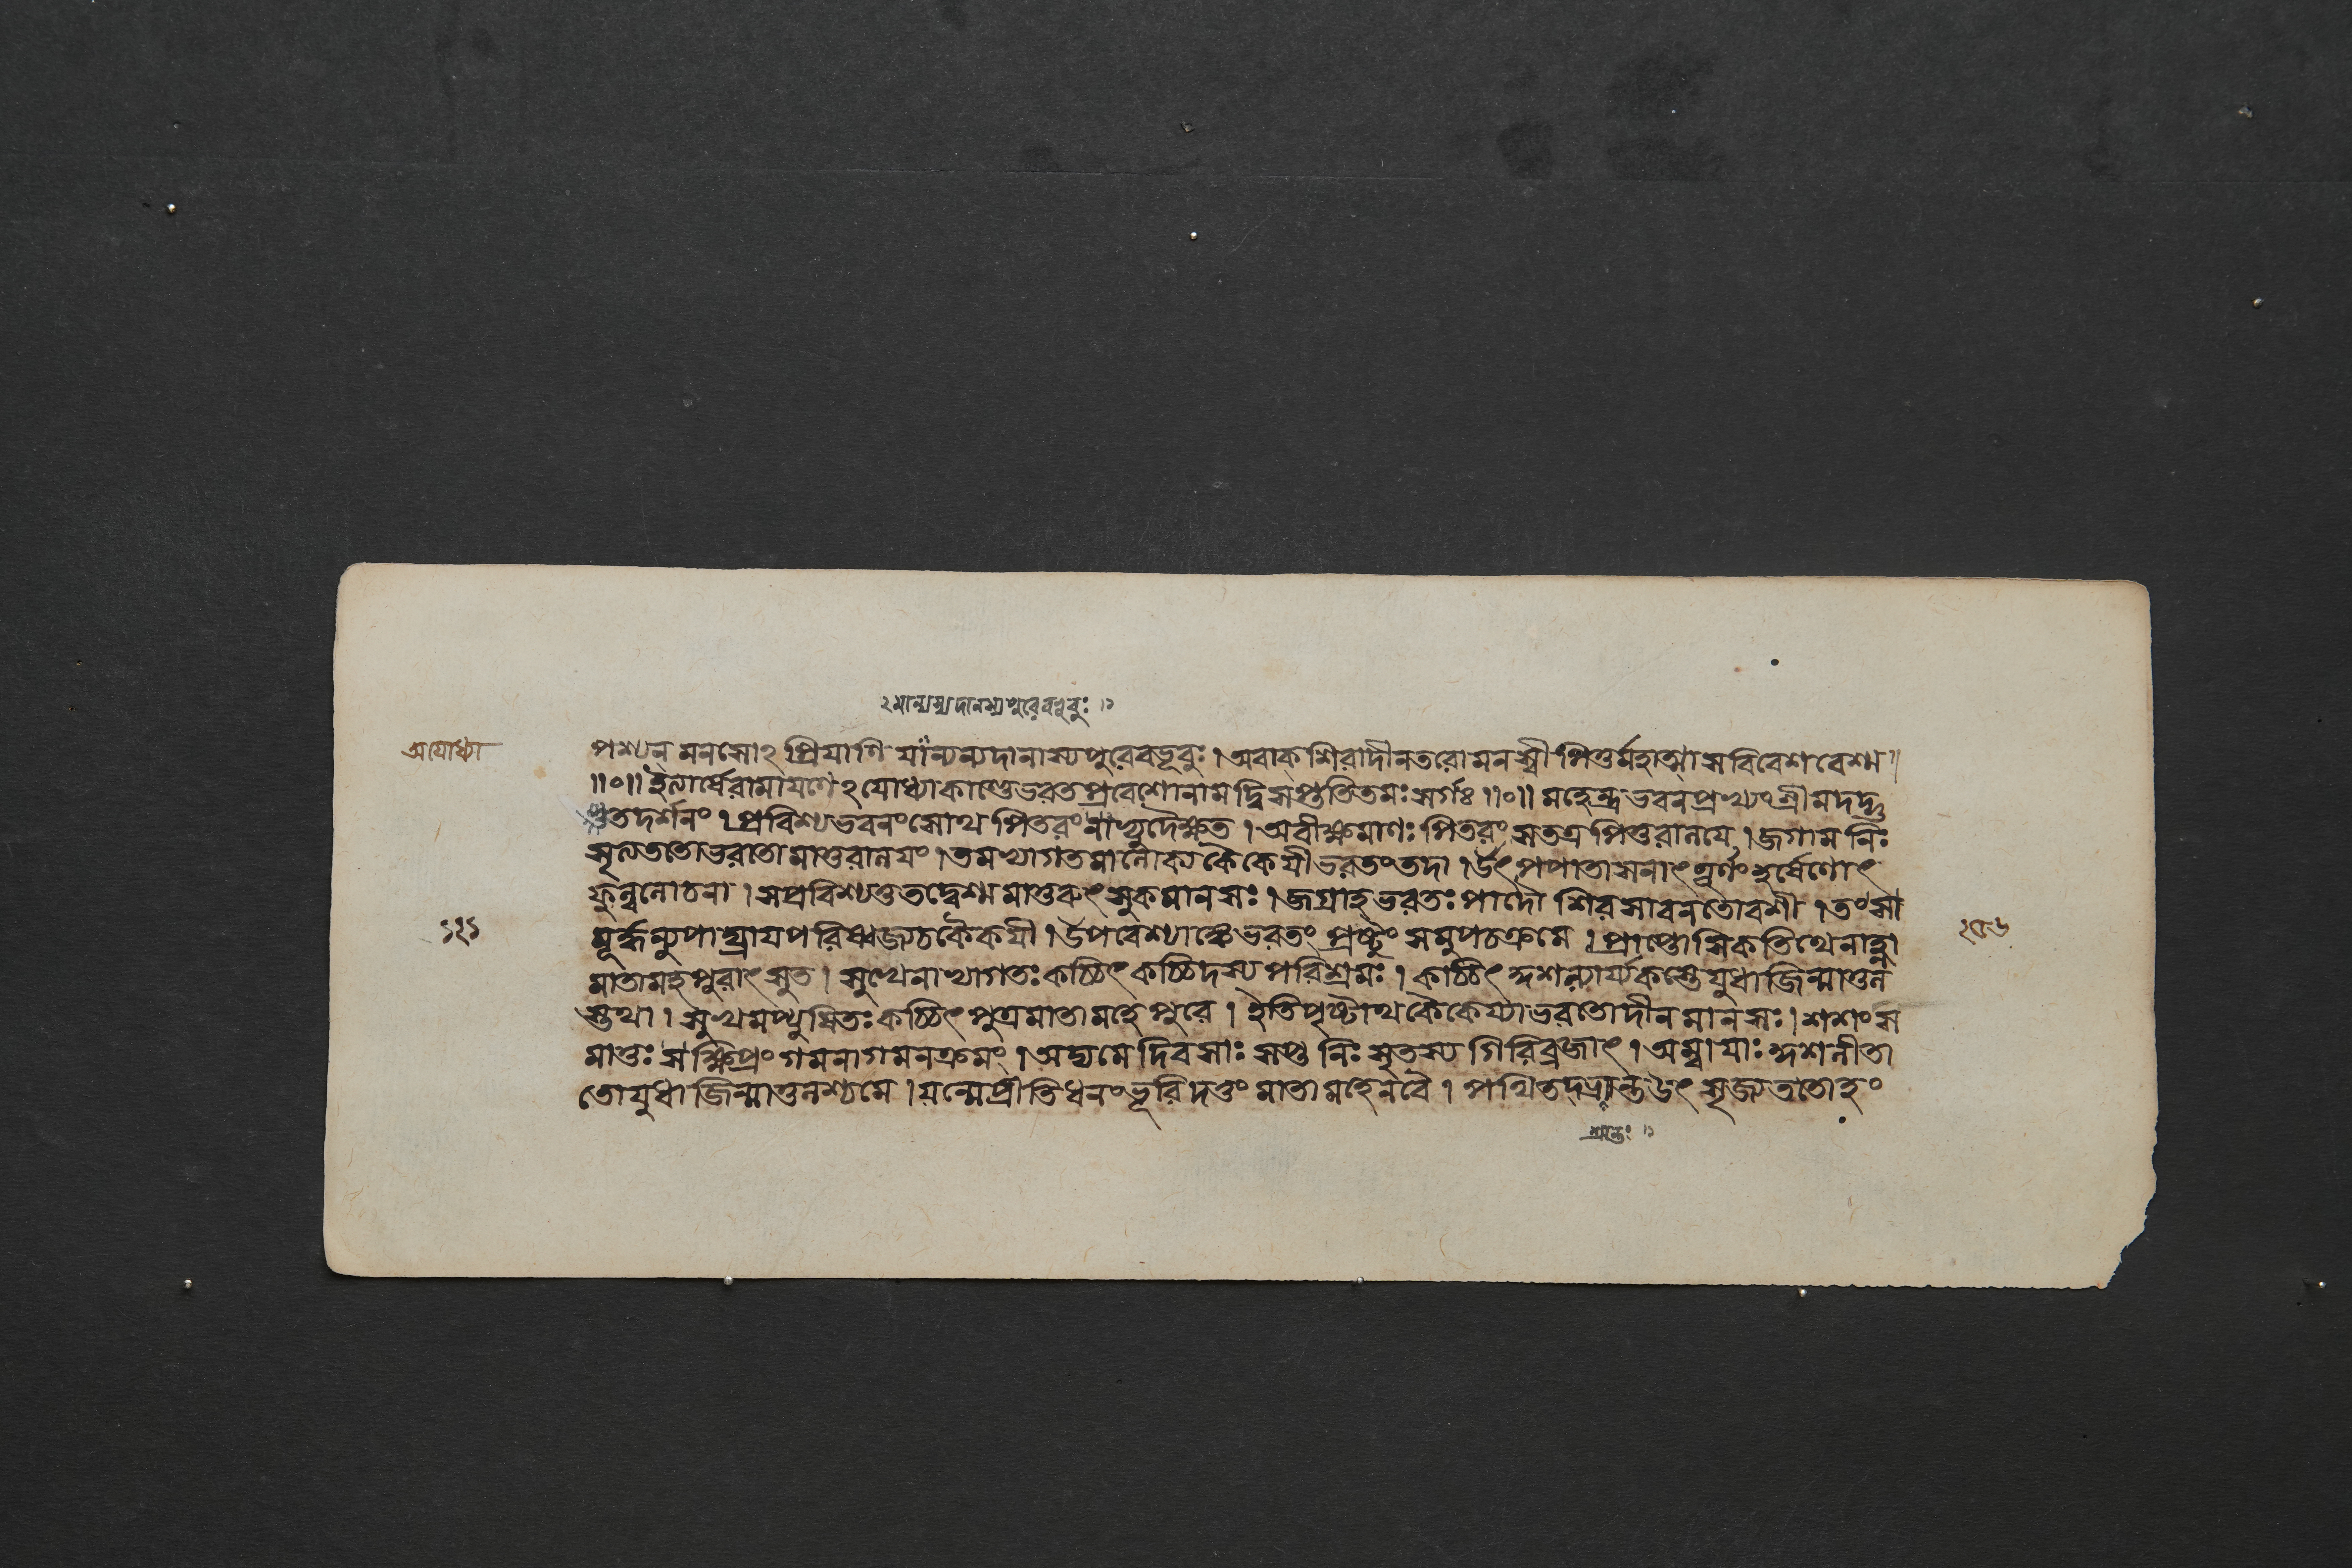 ২মান্যন্যদানস্যপুরেবভূবুঃ ॥১
অযোধ্যা
পশ্যন মনসোঽ প্রিযাণি যান্যন্যদানাস্যপুরেবভূবুঃ । অবাক্ শিরাদীনতরো মনস্বী পিতুর্মহাত্মা সবিবেশ বেশ্ম ॥
॥০॥ ইত্যার্ষেরামাযণেঽযোধ্যাকাণ্ডেভরতপ্রবেশোনামদ্বিসপ্ততিতমঃ সর্গঃ ॥০॥ মহেন্দ্রভবনপ্রখ্যং শ্রীমদদ্ভু
তদর্শনং । প্রবিশ্যভবনং সোথ পিতরং নাভ্যুদৈক্ষত । অবীক্ষমাণঃ পিতরং সতত্র পিতুরালযে । জগাম নিঃ
সৃত্যততোভরতো মাতুরালযং । তমভ্যাগতমালোক্য কৈকেযীভরতং তদা । উৎপপাতাসনাৎ তূর্ণং হর্ষেণোৎ
ফুল্ললোচনা । সপ্রবিশ্যতুতদ্বেশ্ম মাতুরুৎসুকমানসঃ । জগ্রাহ ভরতঃ পাদৌ শিরসাবনতোবশী । তং সা
মূর্দ্ধন্যুপাঘ্রাযপরিষ্বজ্যচকৈকযী । উপবেশ্যাঙ্কেভরতং প্রষ্টুং সমুপচক্রমে । প্রাপ্তোসিকতিথেনাহ্না
মাতামহপুরাৎ সুত । সুখেনাভ্যাগতঃ কচ্চিৎ কচ্চিদস্য পরিশ্রমঃ । কচ্চিৎ কুশল্যার্য্যকস্তেযুধাজিন্মাতুল
স্তথা । সুখমপ্যুষিতঃ কচ্চিৎ পুত্রমাতামহেপুরে । ইতিপৃষ্টোথকৈকেয্যাভরতোদীনমানসঃ । শশংস
মাতুঃ সক্ষিপ্রং গমনাগমনক্রমং । অদ্যমে দিবসাঃ সপ্ত নিঃসৃতস্য গিরিব্রজাৎ । অম্বাযাঃ কুশলীতা
তোযুধাজিন্মাতুলশ্চমে । যন্মেপ্রীতিধনংভূরিদত্তং মাতামহেনবৈ । পথিতদশ্রান্তউৎসৃজ্যততোহং
শ্রান্তঃ ॥১
১২১
২৫৬